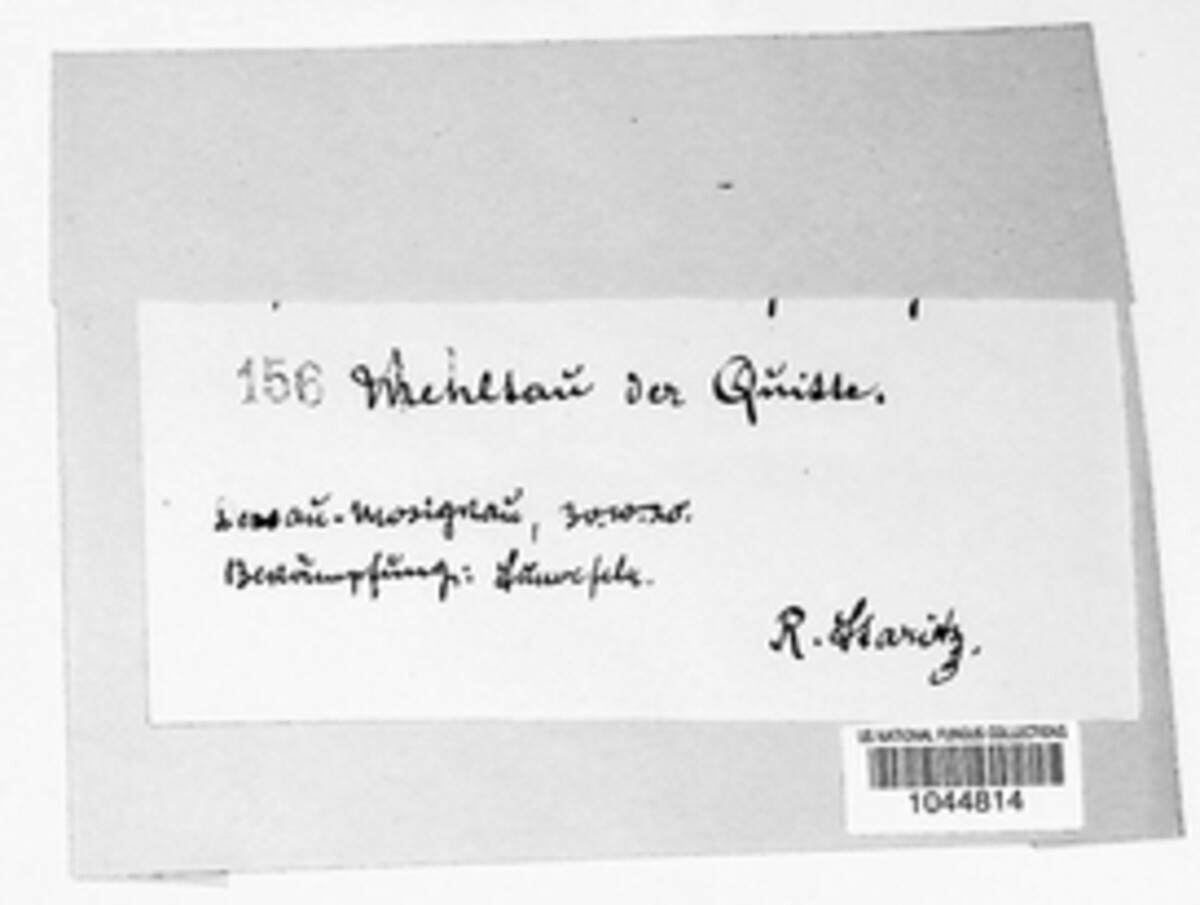 156 Mehltau der Quitte.
Dessau-Mosigkau,
Bekämpfung: Schwefeln.
R. Staritz.
US NATIONAL FUNGUS COLLECTIONS
1044814